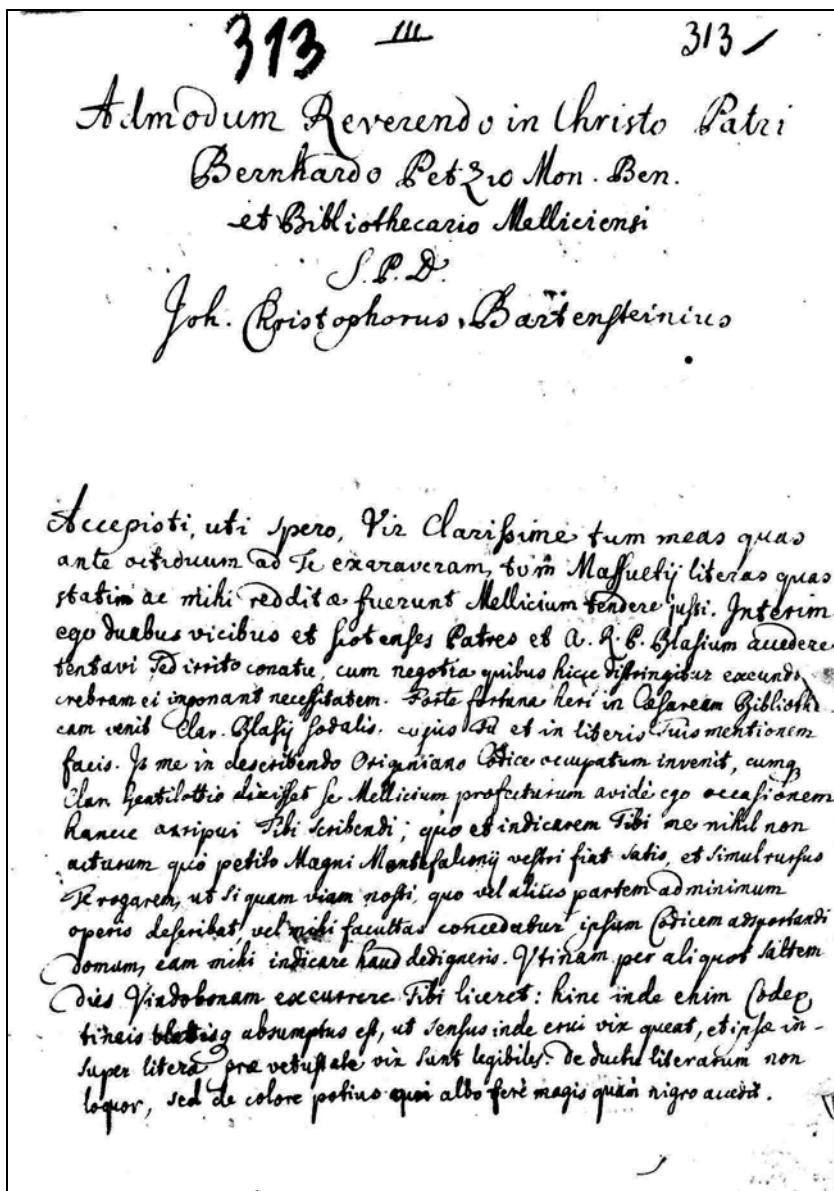 313 III 313
Admodum Reverendo in Christo Patri
Bernhardo Petzio Mon. Ben.
et Bibliothecario Melliciensi
S. P. D.
Joh. Christophorus Bartensteinius
Accepisti, uti spero, Vir Clarissime tum meas quas
ante octiduum ad Te exaraveram, tum Massuetij literas quas
statim ac mihi redditæ fuerunt Mellicium tendere jussi. Interim
ego duabus vicibus et Scotenses Patres et A. R. P. Blasium accedere
tentavi sed irrito conatu, cum negotia quibus hicce distringitur exeundi
crebram ei imponant necessitatem. Forte fortuna heri in Cæsaream Bibliothe
cam venit Clar. Blasij sodalis, cujus Tu et in literis Tuis mentionem
facis. Is me in describendo Origeniano Codice occupatum invenit, cumq
Clar. Gentilottio dixisset se Mellicium profecturum avidè ego occasionem
hancce arripui Tibi scribendi; quo et indicarem Tibi me nihil non
acturum quo petito Magni Montefalconij vestri fiat satis, et simul rursus
Te rogarem, ut si quam viam nosti, quo vel alius partem ad minimum
operis describat, vel mihi facultas concedatur ipsum Codicem adsportandi
domum, eam mihi indicare haud dedigneris. Vtinam per aliquot saltem
dies Vindobonam excurrere Tibi liceret: hinc inde enim Codex
tineis blatisq absumptus est, ut sensus inde erui vix queat, et ipsæ in-
super literæ præ vetustate vix sunt legibiles. De ductu literarum non
loquor, sed de colore potius qui albo ferè magis quàm nigro accedit.